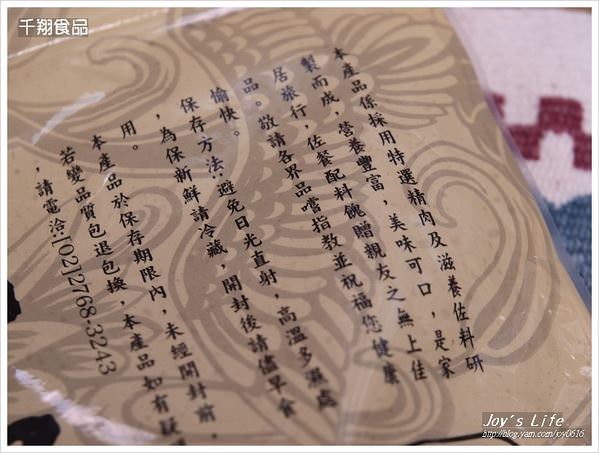 千翔食品
本產品係採用特選精肉及滋養佐料研
製而成，營養豐富，美味可口，是家
居旅行，佐餐配料餽贈親友之無上佳
品。敬請各界品嚐指教並祝福您健康
愉快。
保存方法：避免日光直射，高溫多濕處
，為保新鮮請冷藏，開封後請儘早食
用。
本產品於保存期限內，未經開封前，
若變品質包退包換，本產品如有疑
，請電洽:[02]2768-3243
Joy's Life
http://blog.yam.com/joy0616